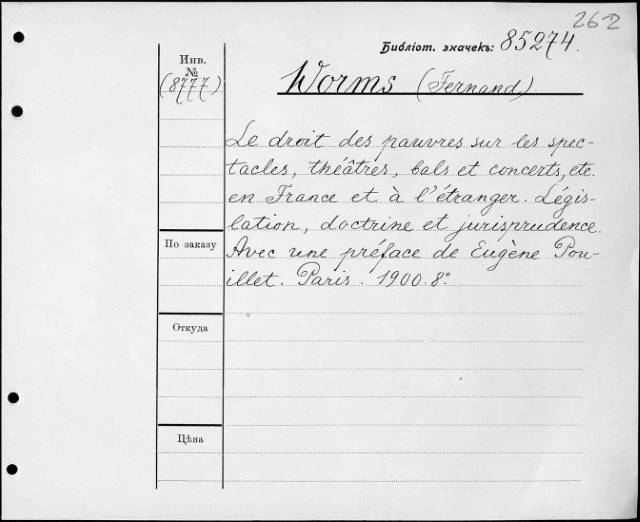 262
Библіот. значекъ: 85274.
Инв.
№
(8777)
Worms (Fernand).
Le droit des pauvres sur les spec-
tacles, théâtres, bals et concerts, etc.
en France et à l'étranger. Légis-
lation, doctrine et jurisprudence.
По заказу
Avec une préface de Eugène Pou-
illet. Paris. 1900. 8º
Откуда
Цѣна